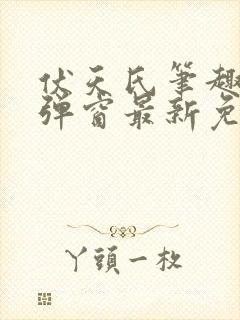 伏天氏筆趣
彈窗最新免
丫頭一枚